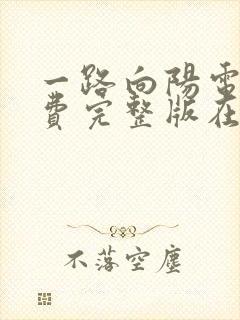 一路向陽電
費完整版在
不落空塵